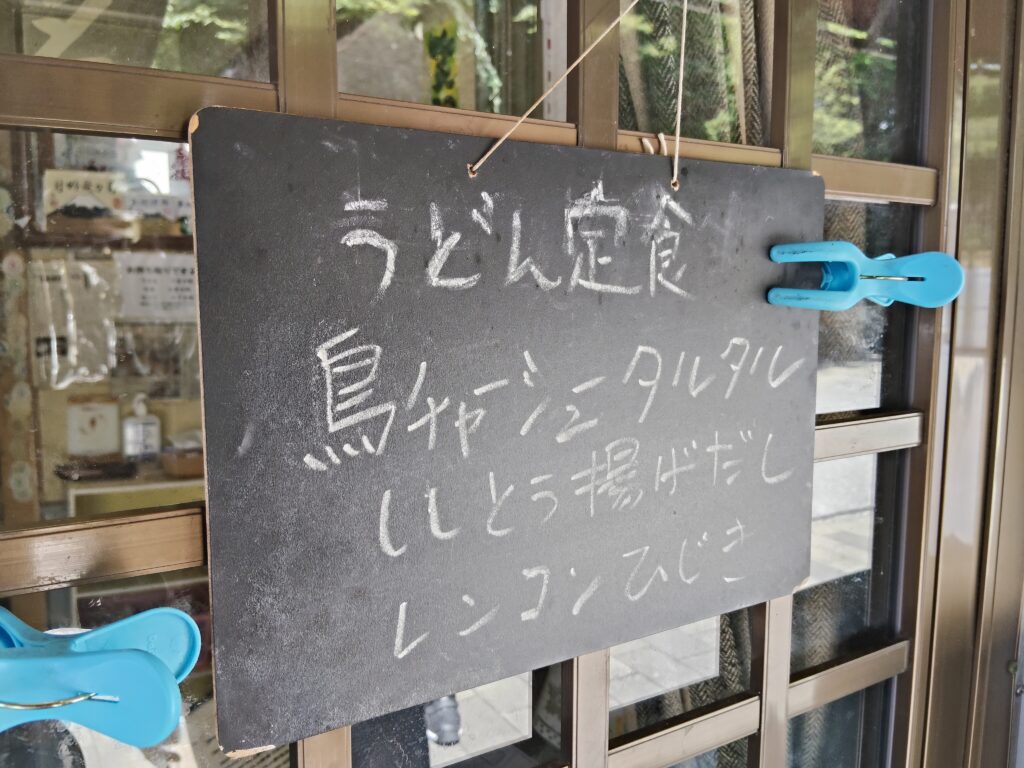 うどん定食
鳥チャーシュータルタル
ししとう揚げだし
レンコンひじき